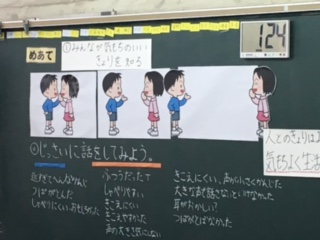 めあて
①みんなが気もちのいい
きょりを知る
124
②じっさいに話をしてみよう。
近すぎてへんなかんじ
つばがとんだ
しゃべりにくい
ふつうだった
しゃべりやすい
きこえにくい
きこえやすかった
声の大きさ気にしない
きこえにくい、声が小さくかんじた
大きな声で話さないといけなかった
耳がおかしい？
つばがとばなかった
人とのきょりは
気もちよく生活